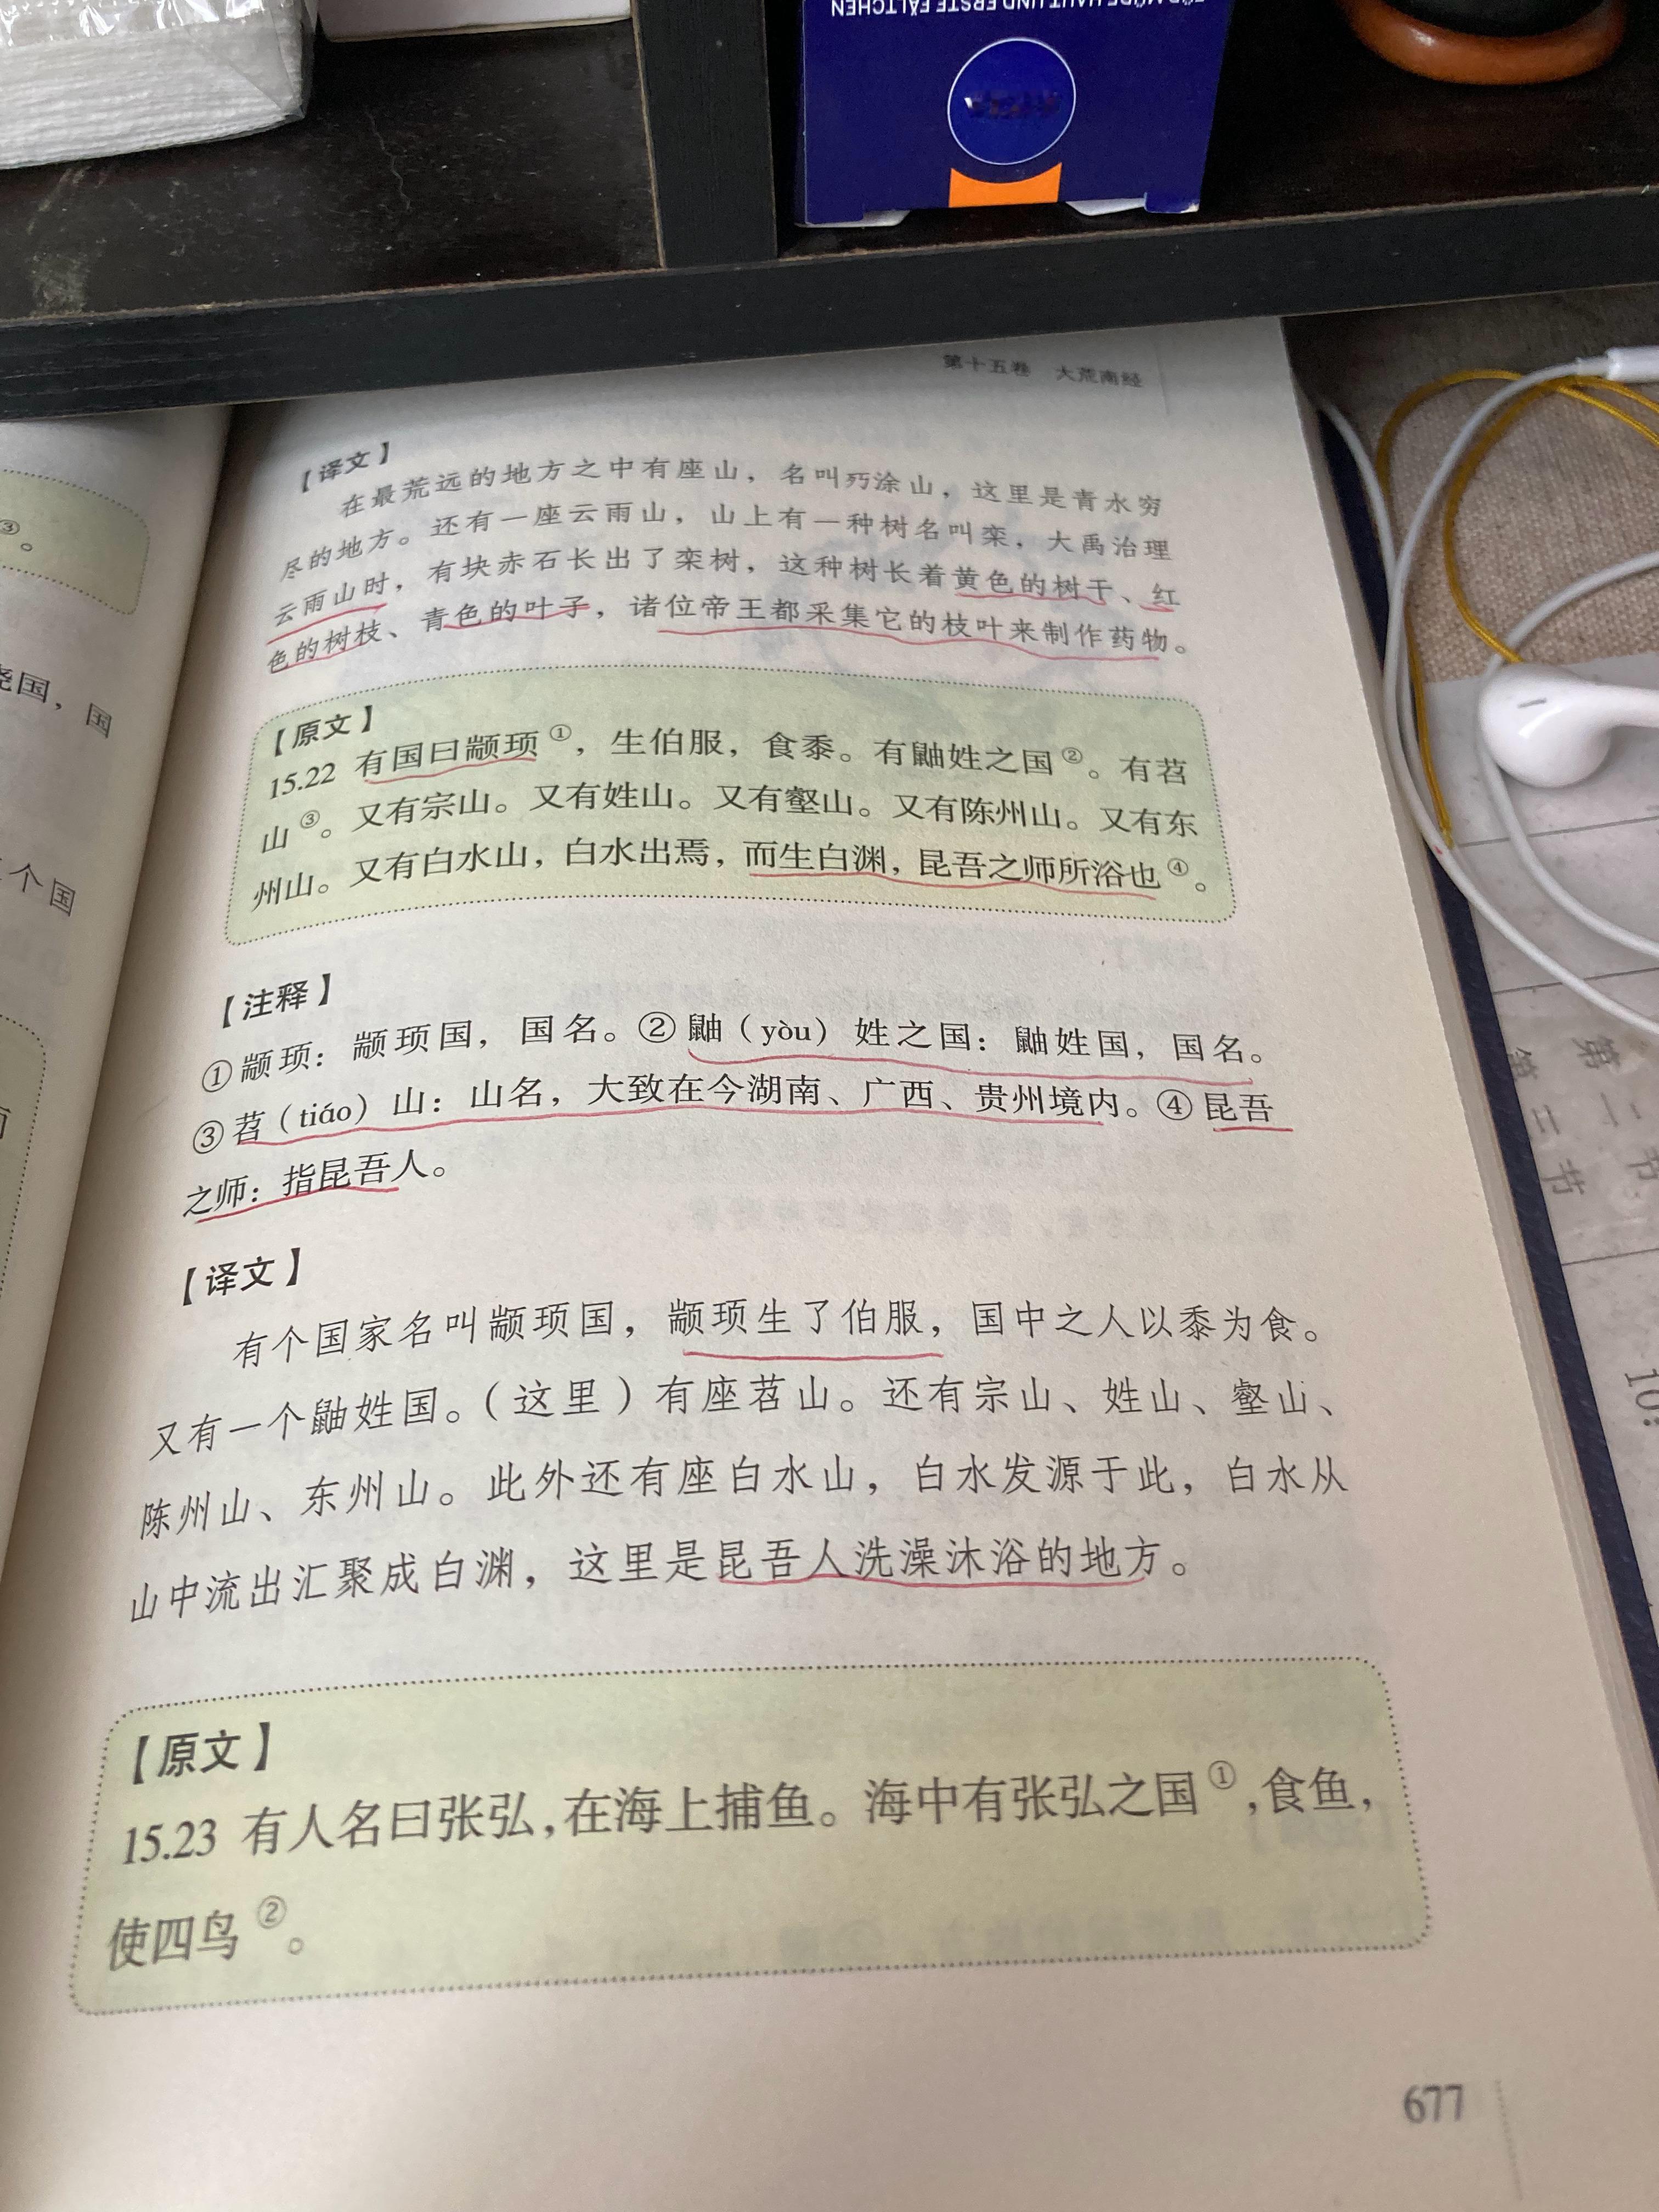 FÜR MÜDE HAUT UND ERSTE FÄLTCHEN
第十五卷 大荒南经
【译文】
在最荒远的地方之中有座山，名叫㱙涂山，这里是青水穷
尽的地方。还有一座云雨山，山上有一种树名叫栾，大禹治理
云雨山时，有块赤石长出了栾树，这种树长着黄色的树干、红
色的树枝、青色的叶子，诸位帝王都采集它的枝叶来制作药物。
【原文】
15.22 有国曰颛顼①，生伯服，食黍。有鼬姓之国②。有苕
山③。又有宗山。又有姓山。又有壑山。又有陈州山。又有东
州山。又有白水山，白水出焉，而生白渊，昆吾之师所浴也④。
【注释】
①颛顼：颛顼国，国名。②鼬（yòu）姓之国：鼬姓国，国名。
③苕（tiáo）山：山名，大致在今湖南、广西、贵州境内。④昆吾
之师：指昆吾人。
【译文】
有个国家名叫颛顼国，颛顼生了伯服，国中之人以黍为食。
又有一个鼬姓国。（这里）有座苕山。还有宗山、姓山、壑山、
陈州山、东州山。此外还有座白水山，白水发源于此，白水从
山中流出汇聚成白渊，这里是昆吾人洗澡沐浴的地方。
【原文】
15.23 有人名曰张弘，在海上捕鱼。海中有张弘之国①，食鱼，
使四鸟②。
677
③。
国，国
个国
第一节
第二节
10: